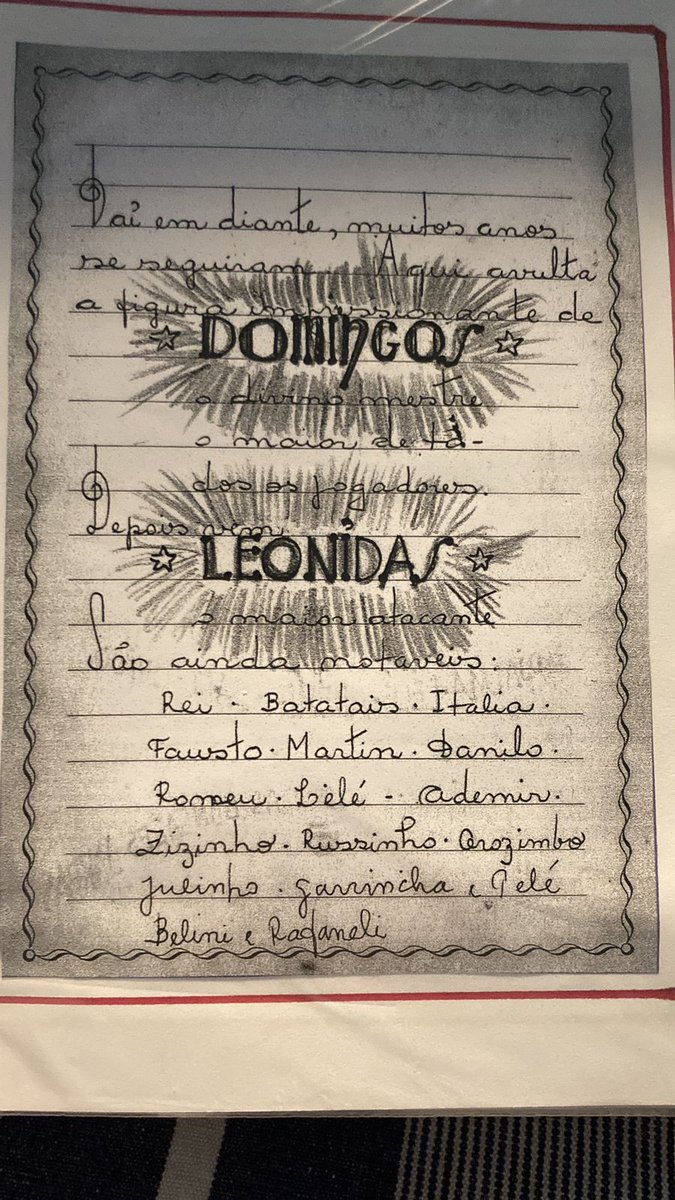 Daí em diante, muitos anos
se seguiram. Aqui avulta
a figura impissionante de
DOMINGOS
o divino mestre
o maior de tô-
dos os jogadores.
Depois vem
LEONIDAS
o maior atacante
São ainda notaveis:
Rei · Batatais · Italia ·
Fausto · Martin · Danilo ·
Romeu · Lelé - Ademir ·
Zizinho · Russinho · Orozimbo
Julinho · Garrincha e Pelé
Belini e